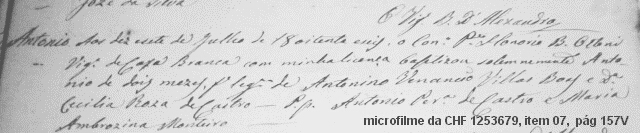 José da Silva
O Vigº B. D'Alexandro
Antonio Aos dez esete de Julho de 18 oitenta eseis, o Conº Pe Honorio B. Ottoni
Vigº de Casa Branca com minha licença baptizou solemnemente Anto
nio de dois mezes, fº legº de Antonino Venancio Villas Boas e dª
Cecilia Roza de Castro — Pp. Antonio Perª de Castro e Maria
Ambrozina Monteiro
microfilme da CHF 1253679, item 07, pág 157V